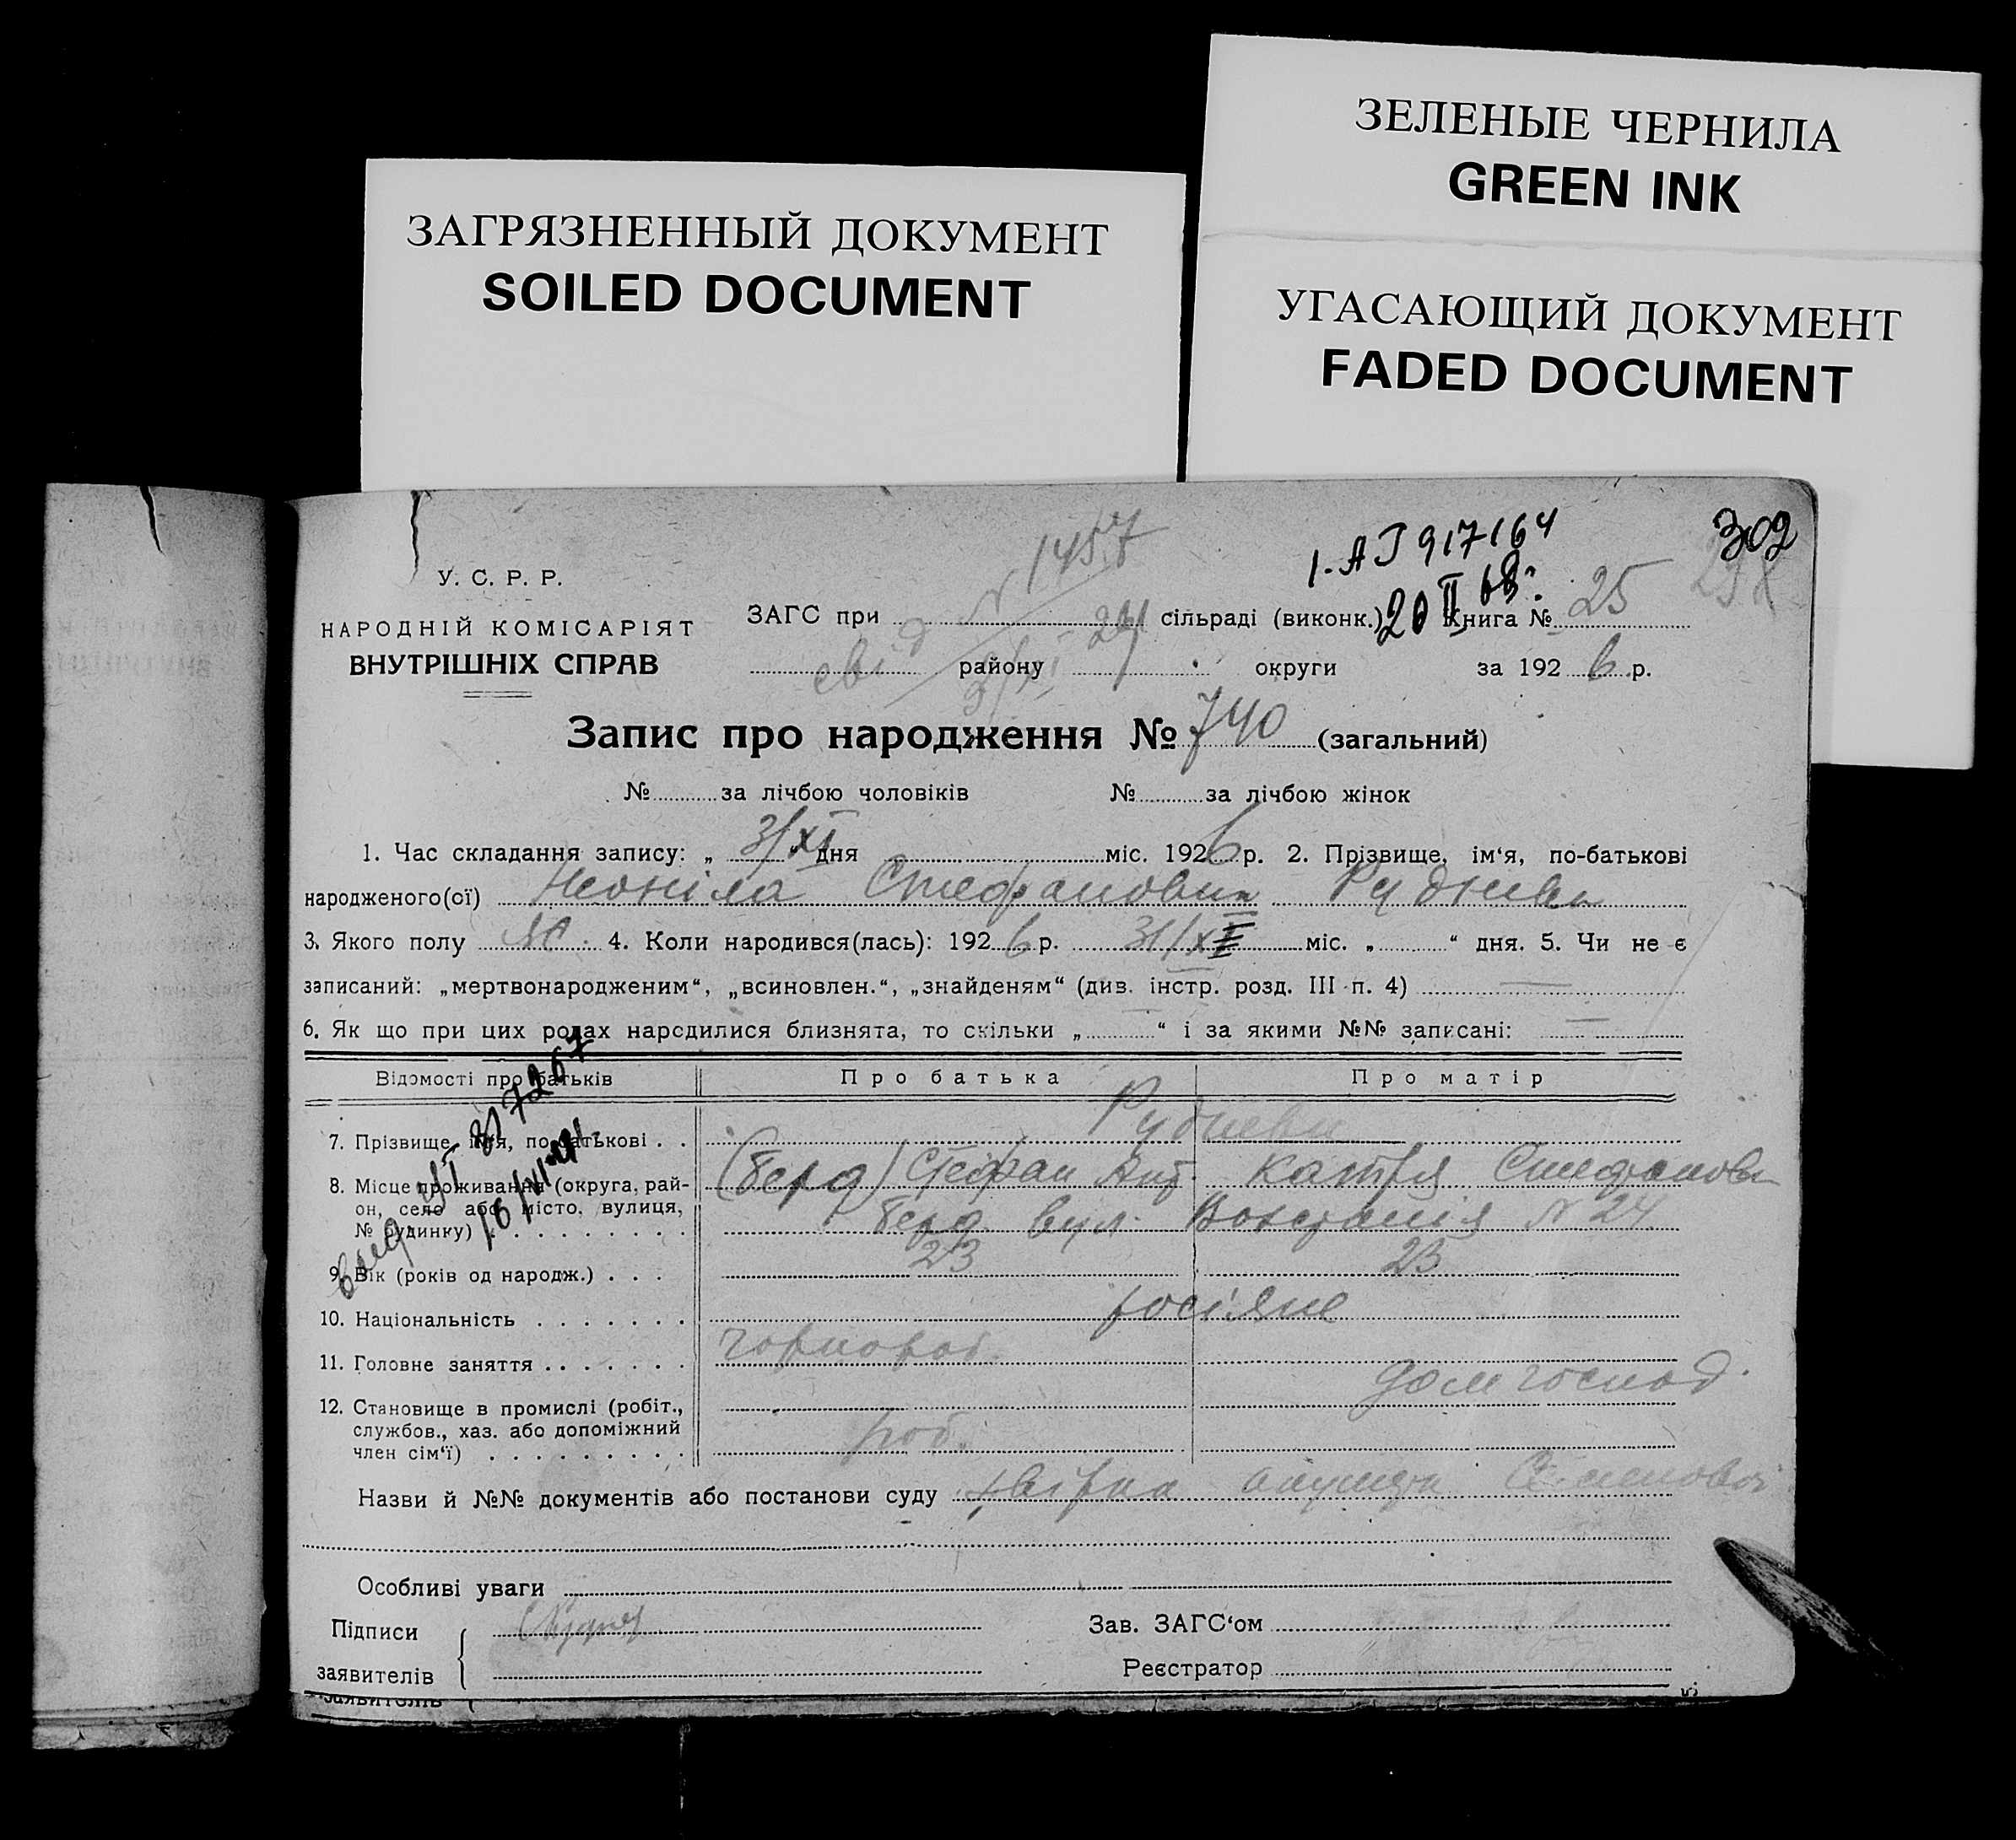 ЗЕЛЕНЫЕ ЧЕРНИЛА
GREEN INK
ЗАГРЯЗНЕННЫЙ ДОКУМЕНТ
SOILED DOCUMENT
УГАСАЮЩИЙ ДОКУМЕНТ
FADED DOCUMENT
302
1457
1-АЈ 917164
20 II 68
У. С. Р. Р.
НАРОДНІЙ КОМІСАРІЯТ
ВНУТРІШНІХ СПРАВ
ЗАГС при сільраді (виконк.) Книга № 25
району округи за 192 6 р.
Запис про народження № 740 (загальний)
№ за лічбою чоловіків № за лічбою жінок
1. Час складання запису: „ 3/XI дня міс. 1926 р. 2. Прізвище, ім‘я, по-батькові
народженого(ої) Неоніла Стефановна Руднева
3. Якого полу 4. Коли народився(лась): 192 6 р. 31/X міс. „ “ дня. 5. Чи не є
записаний: „мертвонародженим“, „всиновлен.“, „знайденям“ (див. інстр. розд. III п. 4) —
6. Як що при цих родах народилися близнята, то скільки „ “ і за якими №№ записані: —
Відомості про батьків Про батька Про матір
7. Прізвище, ім‘я, по-батькові . . Руднєви
(Берд) Стефан Ант. Катря Стефанов
8. Місце проживання (округа, рай-
он, село або місто, вулиця,
№ будинку) Берд. вул. Вокстанія № 24
9. Вік (років од народж.) . . . 23 23
10. Національність росіяне
11. Головне заняття чорнороб. дом господ.
12. Становище в промислі (робіт.,
службов., хаз. або допоміжний
член сім‘ї) роб.
Назви й №№ документів або постанови суду
Особливі уваги
Підписи
заявителів
Зав. ЗАГС‘ом
Реєстратор
заявителів